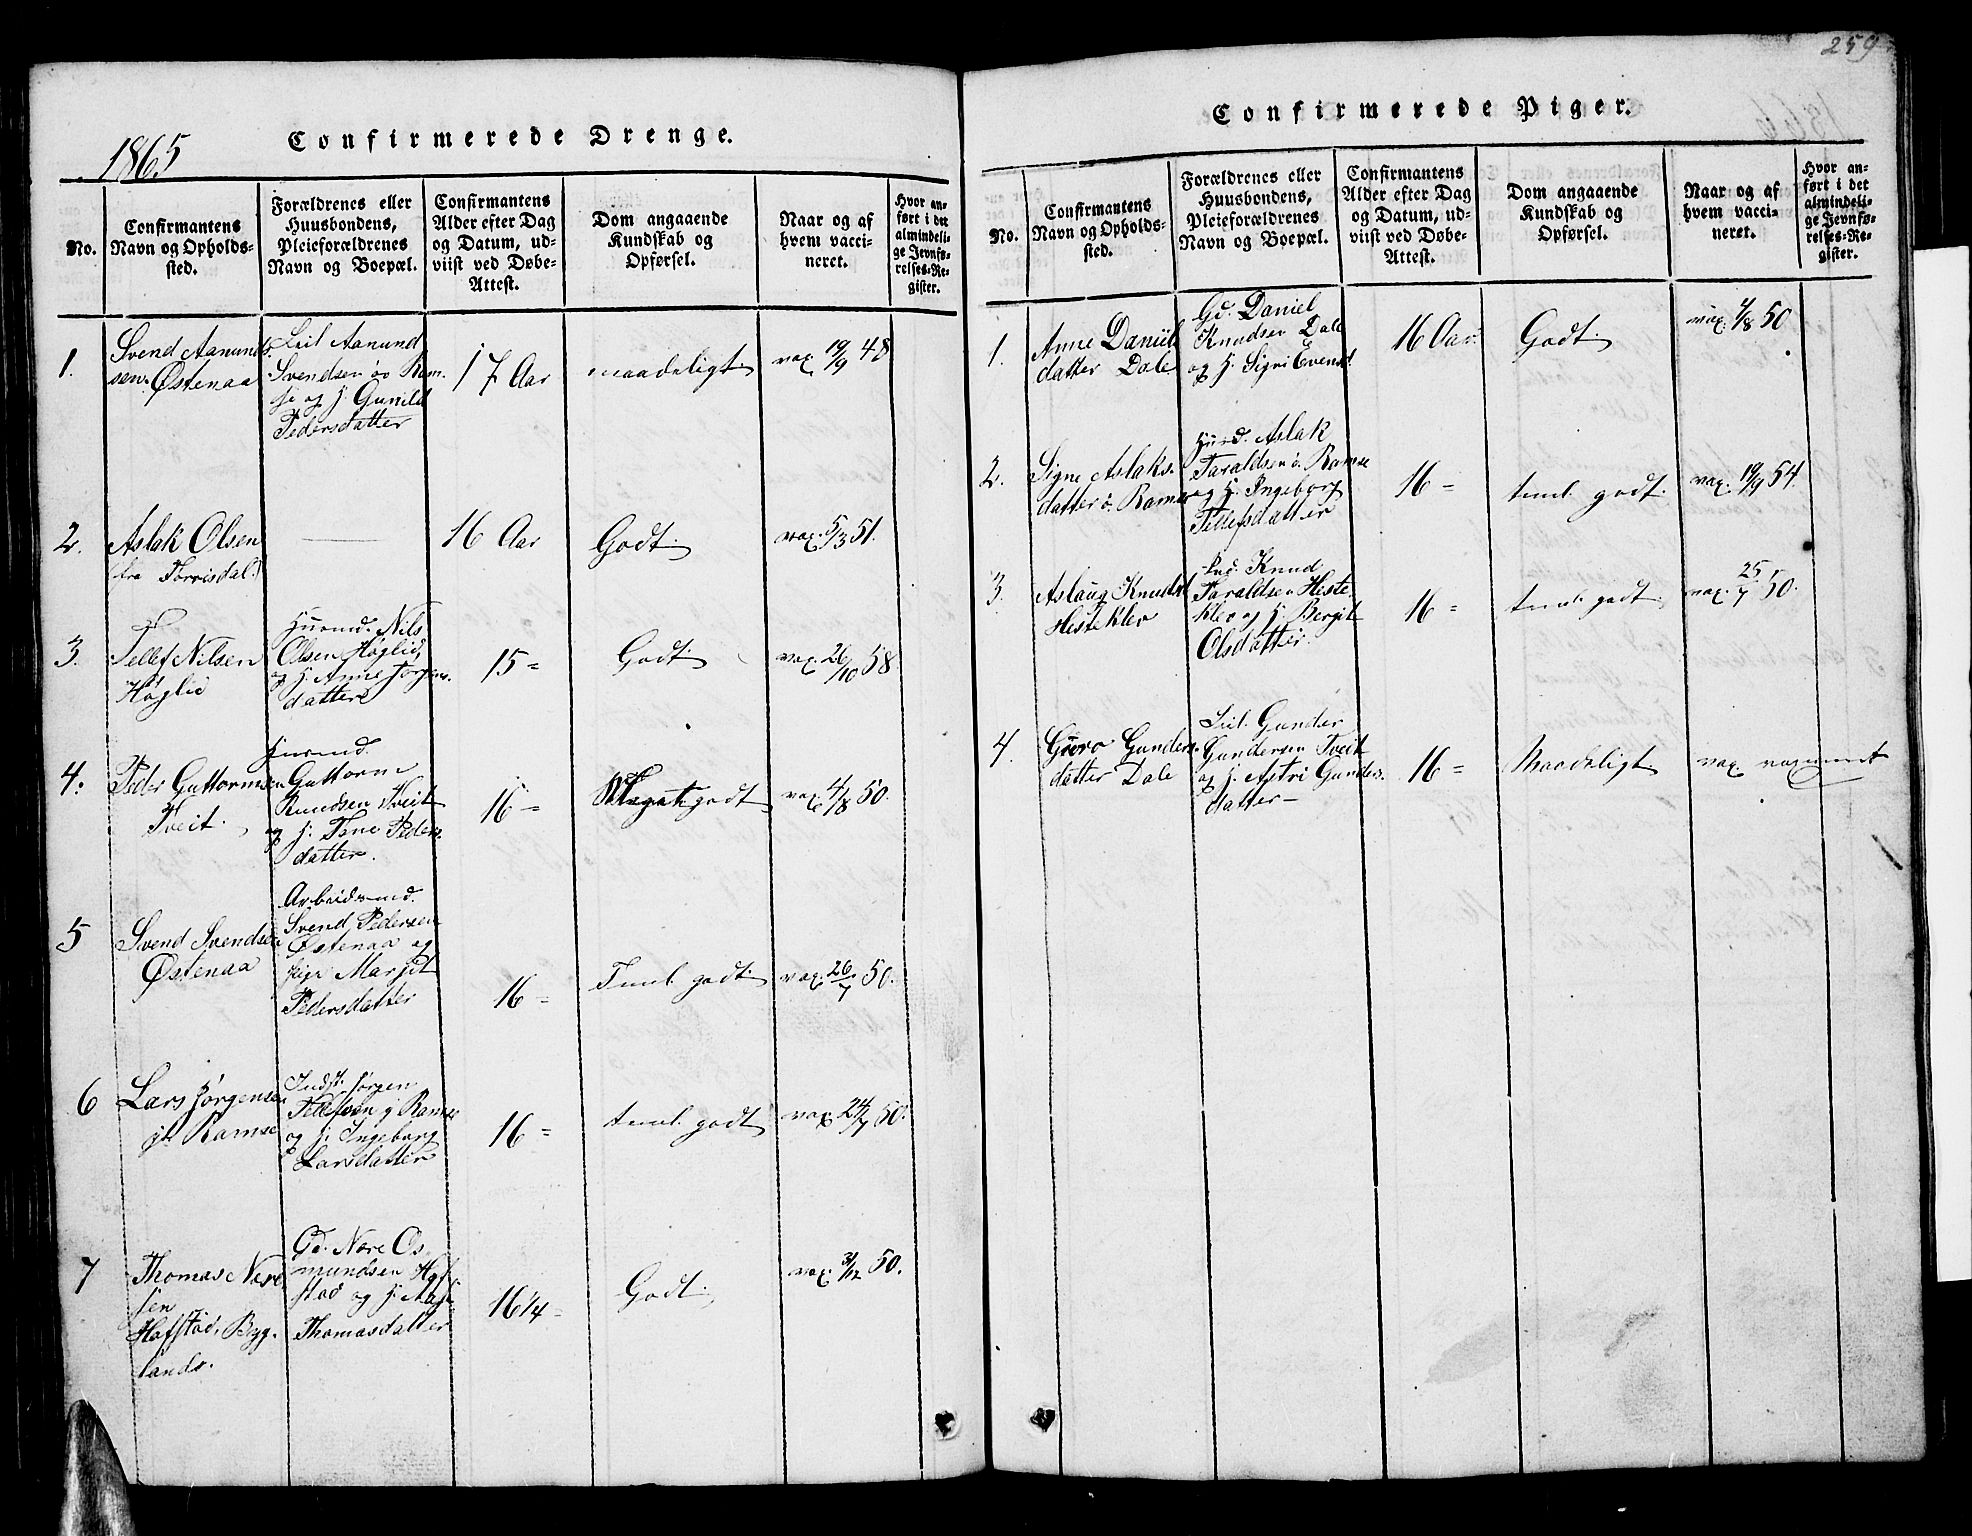 259
1865
Confirmerede Drenge.
No.
Confirmantens
Navn og Opholds-
sted.
Forældrenes eller
Huusbondens,
Pleieforældrenes
Navn og Boepæl.
Confirmantens
Alder efter Dag
og Datum, ud-
viist ved Døbe-
Attest.
Dom angaaende
Kundskab og
Opførsel.
Naar og af
hvem vacci-
neret.
Hvor an-
ført i det
almindeli-
ge Jevnfø-
relses-Re-
gister.
1.
Svend Aanunds
sen Østenaa
Leil Aanund
Svendsen ø Ram-
se og H. Gunild
Pedersdatter
17 Aar
maadeligt
vax. 19/9 48
2.
Aslak Olsen
(fra Torrisdal.)
16 Aar
Godt.
vax. 5/3 51.
3.
Tellef Nilsen
Høglid
Huusmd. Nils
Olsen Høglid,
og H. Anne Jørgens-
datter
15 =
Godt.
vax. 26/10 58.
4.
Peder Guttormsen
Tveit.
Huusmd.
Guttorm
Knudsen Tveit
og H. Tone Peders
datter.
16 =
godt
vax. 4/8 50.
5
Svend Svendsen
Østenaa
Arbeidsmd.
Svend Pedersen
Østenaa og
pige Margit
Pedersdatter
16 =
Teml. godt.
vax. 26/7 50.
6
Lars Jørgensen
y. Ramse
Indst. Jørgen
Tellefsen y Ramse
og H. Ingeborg
Larsdatter
16 =
teml. godt
vax. 24/7 50.
7
Thomas Nære
sen
Hafstad, Byg-
lands.
Gd. Nære Os
mundsen Haf
stad og H. Aase
Thomasdatter
16 1/4 =
Godt.
vax. 31/12 50.
Confirmerede Piger.
No.
Confirmantens
Navn og Opholds-
sted.
Forældrenes eller
Huusbondens,
Pleieforældrenes
Navn og Boepæl.
Confirmantens
Alder efter Dag
og Datum, ud-
viist ved Døbe-
Attest.
Dom angaaende
Kundskab og
Opførsel.
Naar og af
hvem vacci-
neret.
Hvor an-
ført i det
almindeli-
ge Jevnfø-
relses-Re-
gister.
1.
Anne Daniel
datter Dale
Gd. Daniel
Knudsen Dale
og H. Signi Evensd.
16 Aar.
Godt.
vax. 4/8 50
2.
Signe Aslaks-
datter ø. Ramse
Huusmd. Aslak
Taraldsen ø. Ramse
og H. Ingeborg
Tellefsdatter
16 =
teml. godt.
vax. 19/9 54.
3.
Aslaug Knudsd
Hesteklev
Knud
Taraldsen Heste-
klev og H. Bergit
Olsdatter.
16 =
teml. godt.
vax. 25/7 50.
4.
Guro Gunders-
datter Dale
Leil. Gunder
Gundersen Tveit
og H. Astri Gunders-
datter -
16 =
Maadeligt
vax.